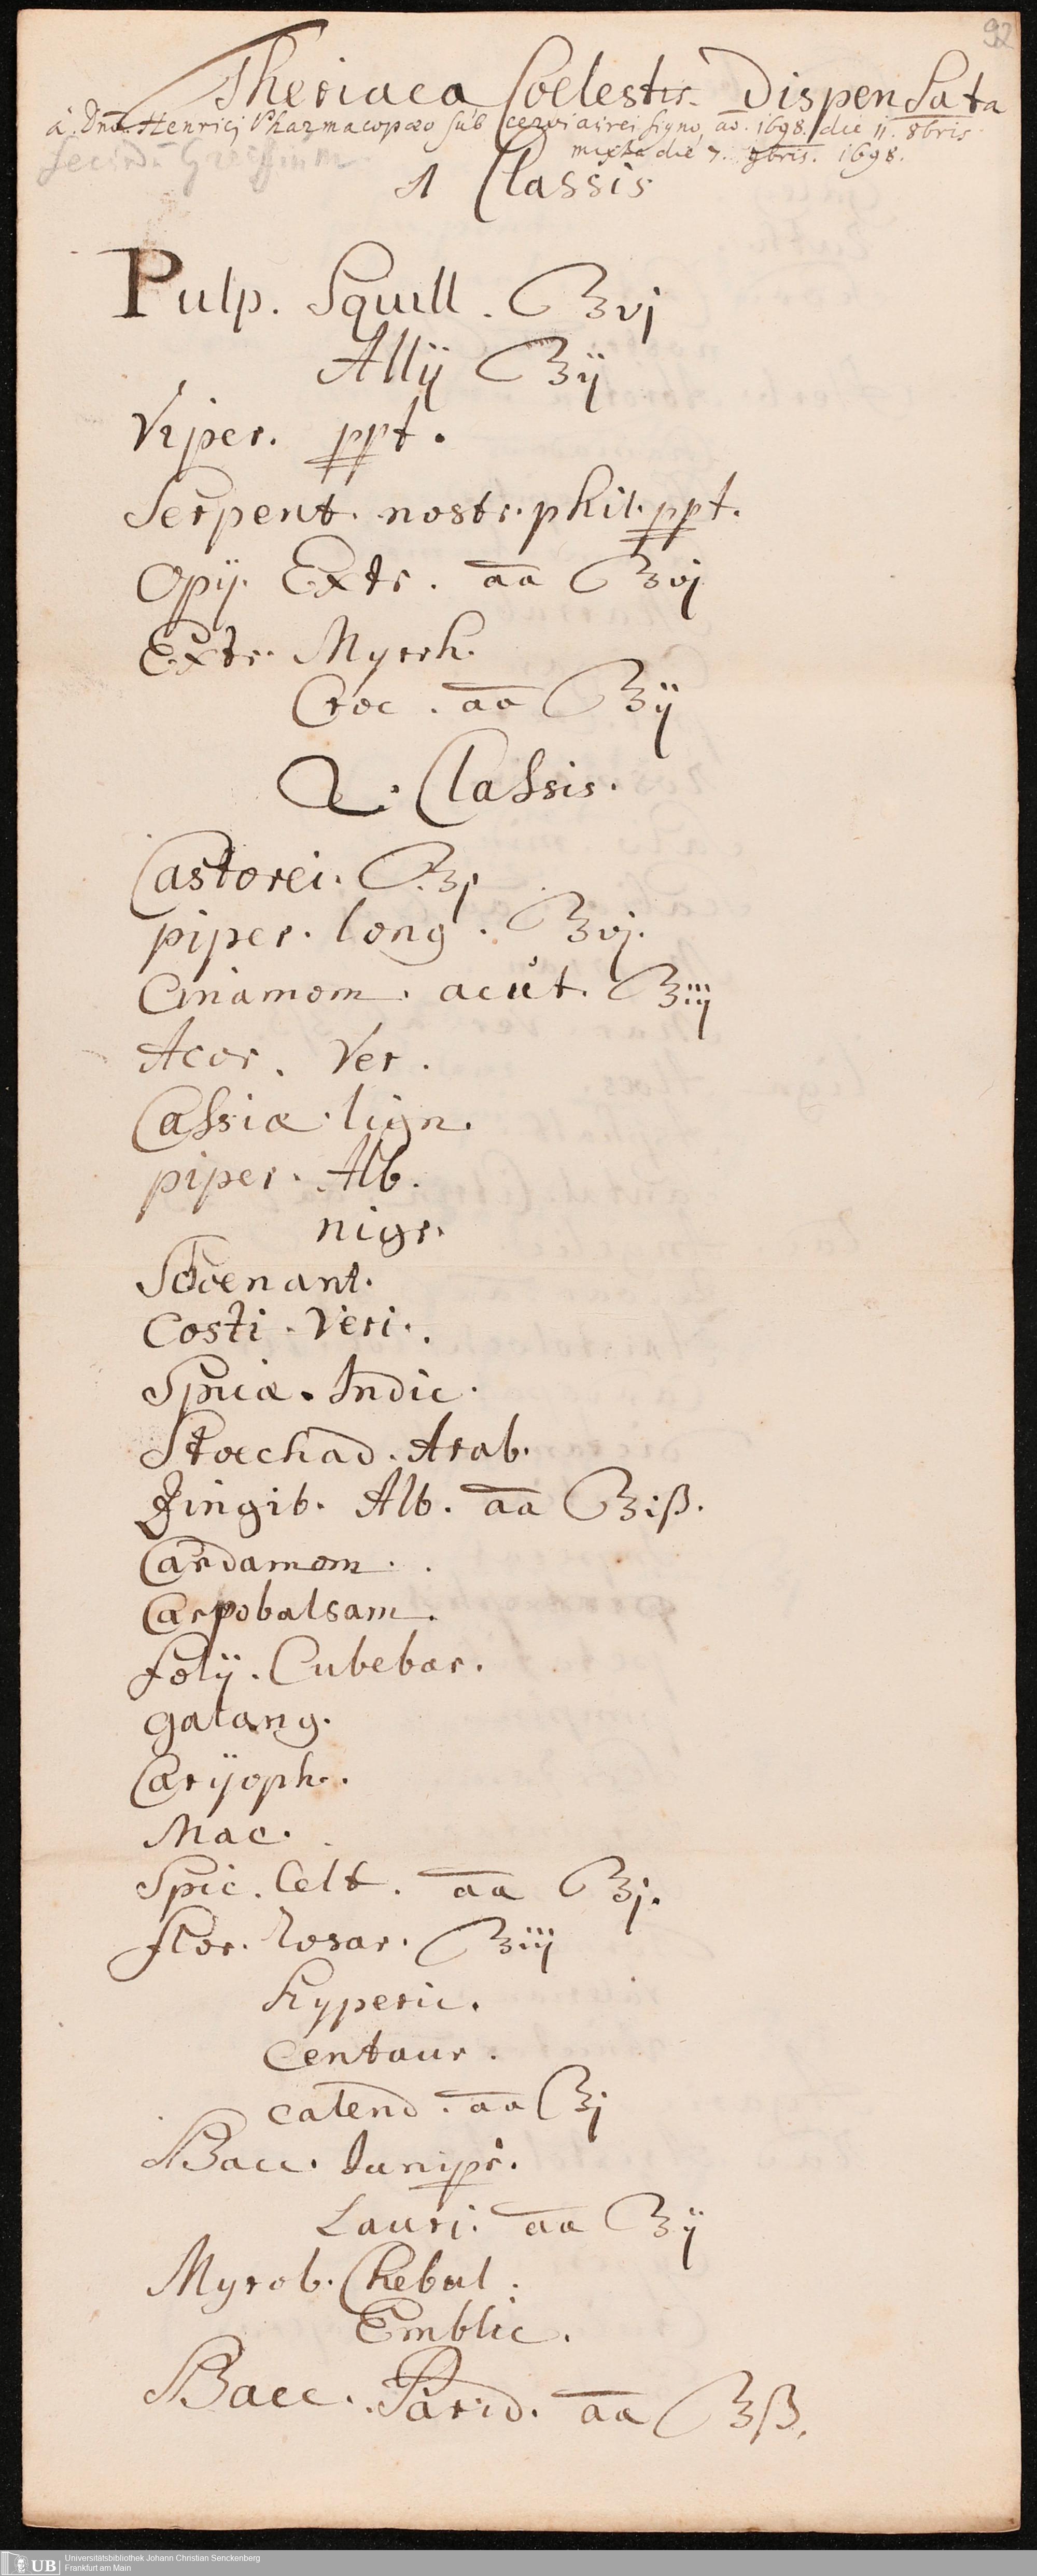 92
Theriaca Coelestis Dispensata
à Dno. Henrici Pharmacopœo sub cervi aurei signo, ao. 1698. die 11. 8bris
mixta die 7. 9bris. 1698.
1 Classis
Pulp. Squill. ℥vj
Allij ℥ij
Viper. ppt.
Serpent. nostr. phil. ppt.
Opij. Extr. aa ℥vj
Extr. Myrrh.
Croc. aa ℥ij
2. Classis.
Castorei. ℥j
piper. long. ℥vj.
Cinamom. acút. ℥iiij
Acor. Ver.
Cassiæ. lign.
piper. Alb.
nigr.
Schoenant.
Costi. Veri.
Spicæ. Indic.
Stoechad. Arab.
Zingib. Alb. aa ℥iß.
Cardamom.
Carpobalsam.
folij. Cubebar.
galang.
Caryoph.
Mac.
Spic. Celt. aa ℥j.
flor. Rosar. ℥iij
Hyperic.
Centaur.
calend. aa ℥j
Bacc. Junipr.
Lauri. aa ℥ij
Myrob. Chebul.
Emblic.
Bacc. Parid. aa ℥ß.
UB
Universitätsbibliothek Johann Christian Senckenberg
Frankfurt am Main